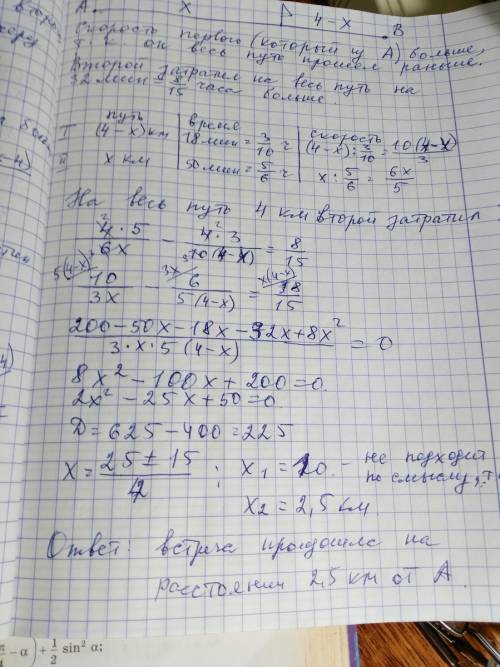 A. X 4-X .B
Скорость первого (который из А) больше,
т.к он весь путь прошел раньше.
Второй затратил на весь путь на
32 мин = 8/15 часа больше.
путь время скорость
I (4-x) км 18 мин = 3/10 ч (4-x) : 3/10 = 10(4-x)/3
II x км 50 мин = 5/6 ч x : 5/6 = 6x/5
На весь путь 4 км второй затратил
4·5/6x - 4·3/10(4-x) = 8/15
10/3x - 6/5(4-x) = 8/15
200-50x-18x-32x+8x²/3·x·5(4-x) = 0
8x²-100x+200=0
2x²-25x+50=0
D=625-400=225
X = 25±15/4 ; X₁=10 - не подходит
по смыслу, т
X₂=2,5 км
Ответ: встреча произошла на
расстоянии 2,5 км от А.
- α) + 1/2 sin² α;